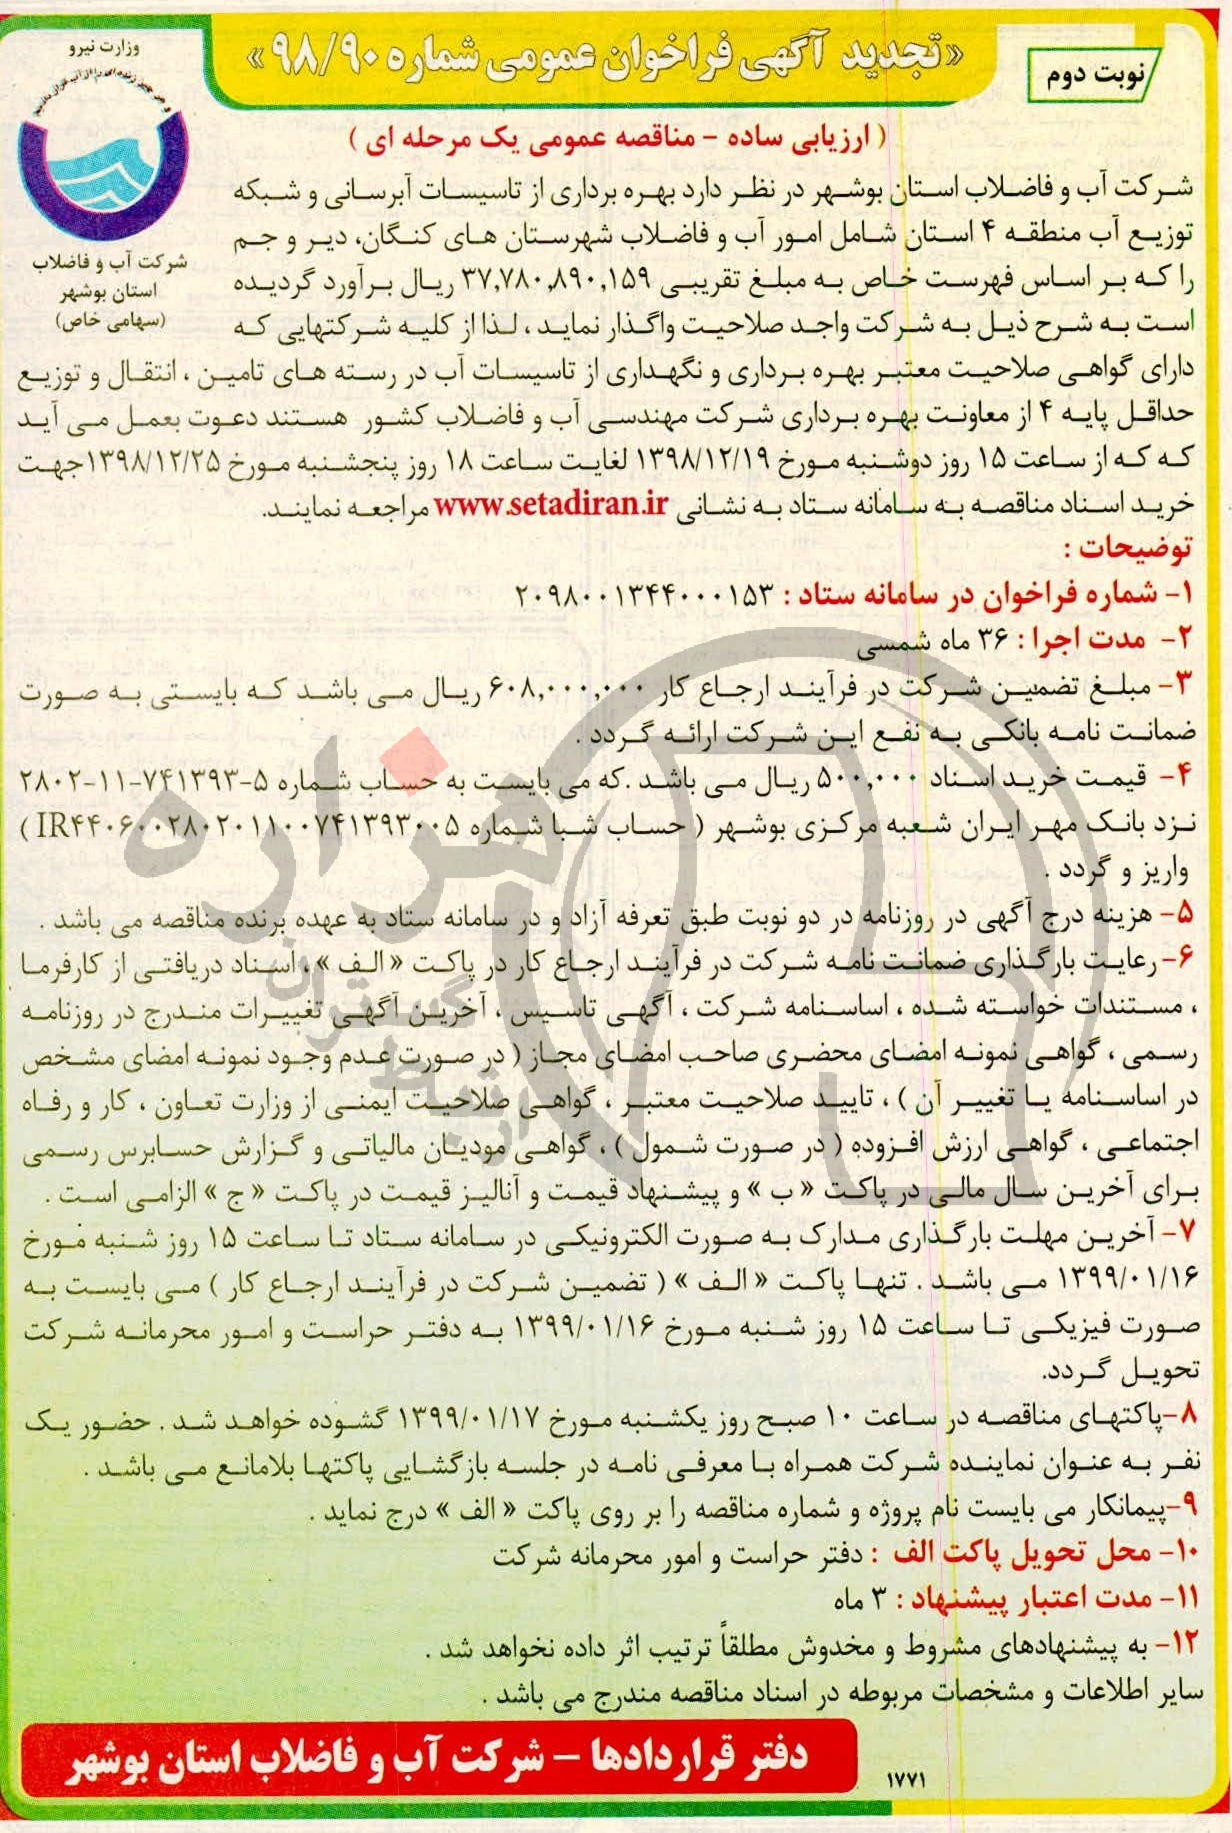 «تجدید آگهی فراخوان عمومی شماره ۹۸/۹۰»
نوبت دوم
وزارت نیرو
شرکت آب و فاضلاب
استان بوشهر
(سهامی خاص)
( ارزیابی ساده - مناقصه عمومی یک مرحله ای )
شرکت آب و فاضلاب استان بوشهر در نظر دارد بهره برداری از تاسیسات آبرسانی و شبکه
توزیع آب منطقه ۴ استان شامل امور آب و فاضلاب شهرستان های کنگان، دیر و جم
را که بر اساس فهرست خاص به مبلغ تقریبی ۳۷,۷۸۰,۸۹۰,۱۵۹ ریال برآورد گردیده
است به شرح ذیل به شرکت واجد صلاحیت واگذار نماید ، لذا از کلیه شرکتهایی که
دارای گواهی صلاحیت معتبر بهره برداری و نگهداری از تاسیسات آب در رسته های تامین ، انتقال و توزیع
حداقل پایه ۴ از معاونت بهره برداری شرکت مهندسی آب و فاضلاب کشور هستند دعوت بعمل می آید
که که از ساعت ۱۵ روز دوشنبه مورخ ۱۳۹۸/۱۲/۱۹ لغایت ساعت ۱۸ روز پنجشنبه مورخ ۱۳۹۸/۱۲/۲۵جهت
خرید اسناد مناقصه به سامانه ستاد به نشانی www.setadiran.ir مراجعه نمایند.
توضیحات :
۱- شماره فراخوان در سامانه ستاد : ۲۰۹۸۰۰۱۳۴۴۰۰۰۱۵۳
۲- مدت اجرا : ۳۶ ماه شمسی
۳- مبلغ تضمین شرکت در فرآیند ارجاع کار ۶۰۸,۰۰۰,۰۰۰ ریال می باشد که بایستی به صورت
ضمانت نامه بانکی به نفع این شرکت ارائه گردد .
۴- قیمت خرید اسناد ۵۰۰,۰۰۰ ریال می باشد .که می بایست به حساب شماره ۵-۷۴۱۳۹۳-۱۱-۲۸۰۲
نزد بانک مهر ایران شعبه مرکزی بوشهر ( حساب شبا شماره IR۴۴۰۶۰۰۲۸۰۲۰۱۱۰۰۷۴۱۳۹۳۰۰۵ )
واریز و گردد .
۵- هزینه درج آگهی در روزنامه در دو نوبت طبق تعرفه آزاد و در سامانه ستاد به عهده برنده مناقصه می باشد .
۶- رعایت بارگذاری ضمانت نامه شرکت در فرآیند ارجاع کار در پاکت « الف »، اسناد دریافتی از کارفرما
، مستندات خواسته شده ، اساسنامه شرکت ، آگهی تاسیس ، آخرین آگهی تغییرات مندرج در روزنامه
رسمی ، گواهی نمونه امضای محضری صاحب امضای مجاز ( در صورت عدم وجود نمونه امضای مشخص
در اساسنامه یا تغییر آن ) ، تایید صلاحیت معتبر ، گواهی صلاحیت ایمنی از وزارت تعاون ، کار و رفاه
اجتماعی ، گواهی ارزش افزوده ( در صورت شمول ) ، گواهی مودیان مالیاتی و گزارش حسابرس رسمی
برای آخرین سال مالی در پاکت « ب » و پیشنهاد قیمت و آنالیز قیمت در پاکت « ج » الزامی است .
۷- آخرین مهلت بارگذاری مدارک به صورت الکترونیکی در سامانه ستاد تا ساعت ۱۵ روز شنبه مورخ
۱۳۹۹/۰۱/۱۶ می باشد . تنها پاکت « الف » ( تضمین شرکت در فرآیند ارجاع کار ) می بایست به
صورت فیزیکی تا ساعت ۱۵ روز شنبه مورخ ۱۳۹۹/۰۱/۱۶ به دفتر حراست و امور محرمانه شرکت
تحویل گردد.
۸-پاکتهای مناقصه در ساعت ۱۰ صبح روز یکشنبه مورخ ۱۳۹۹/۰۱/۱۷ گشوده خواهد شد . حضور یک
نفر به عنوان نماینده شرکت همراه با معرفی نامه در جلسه بازگشایی پاکتها بلامانع می باشد .
۹-پیمانکار می بایست نام پروژه و شماره مناقصه را بر روی پاکت « الف » درج نماید .
۱۰- محل تحویل پاکت الف : دفتر حراست و امور محرمانه شرکت
۱۱- مدت اعتبار پیشنهاد : ۳ ماه
۱۲- به پیشنهادهای مشروط و مخدوش مطلقاً ترتیب اثر داده نخواهد شد .
سایر اطلاعات و مشخصات مربوطه در اسناد مناقصه مندرج می باشد .
دفتر قراردادها – شرکت آب و فاضلاب استان بوشهر
۱۷۷۱
هزاره